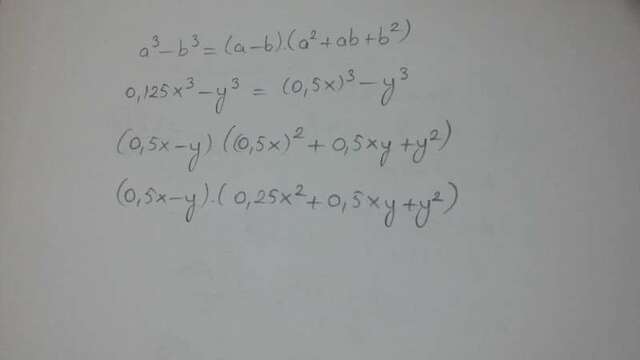 a³-b³=(a-b).(a²+ab+b²)
0,125x³-y³ = (0,5x)³-y³
(0,5x-y)((0,5x)²+0,5xy+y²)
(0,5x-y).(0,25x²+0,5xy+y²)